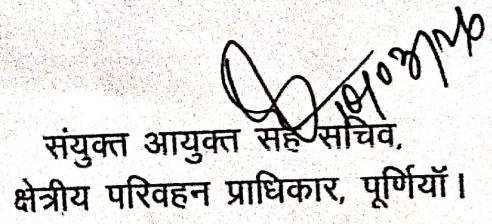 संयुक्त आयुक्त सह सचिव,
क्षेत्रीय परिवहन प्राधिकार, पूर्णियाॅ।